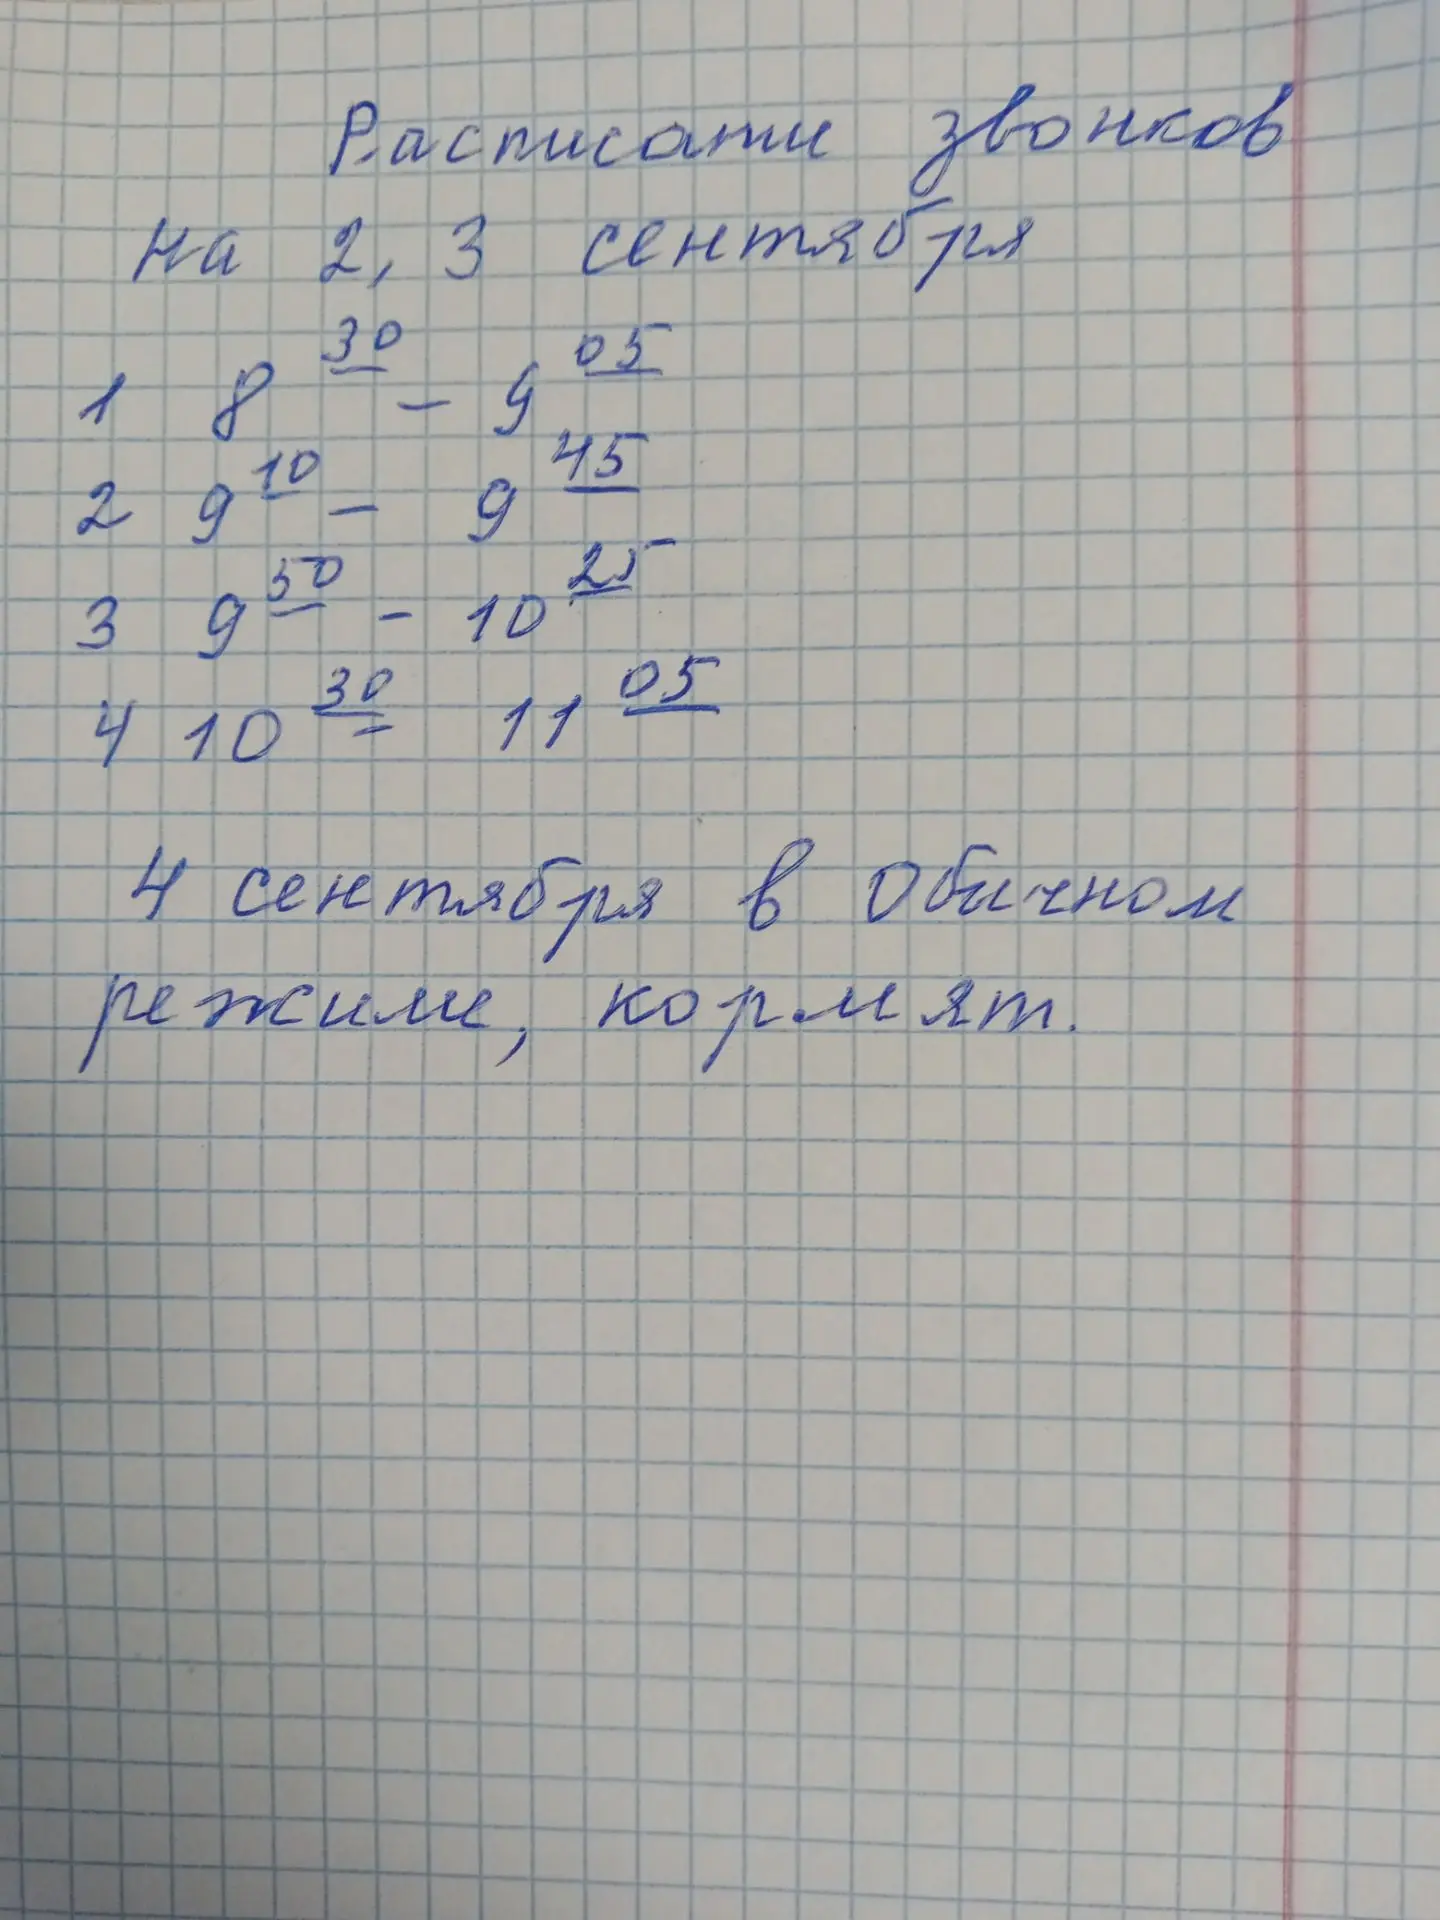 Расписати звонков
на 2, 3 сентября
1 8 30 - 9 05
2 9 10 - 9 45
3 9 50 - 10 25
4 10 30 - 11 05
4 сентября в обычном
режиме, кормят.